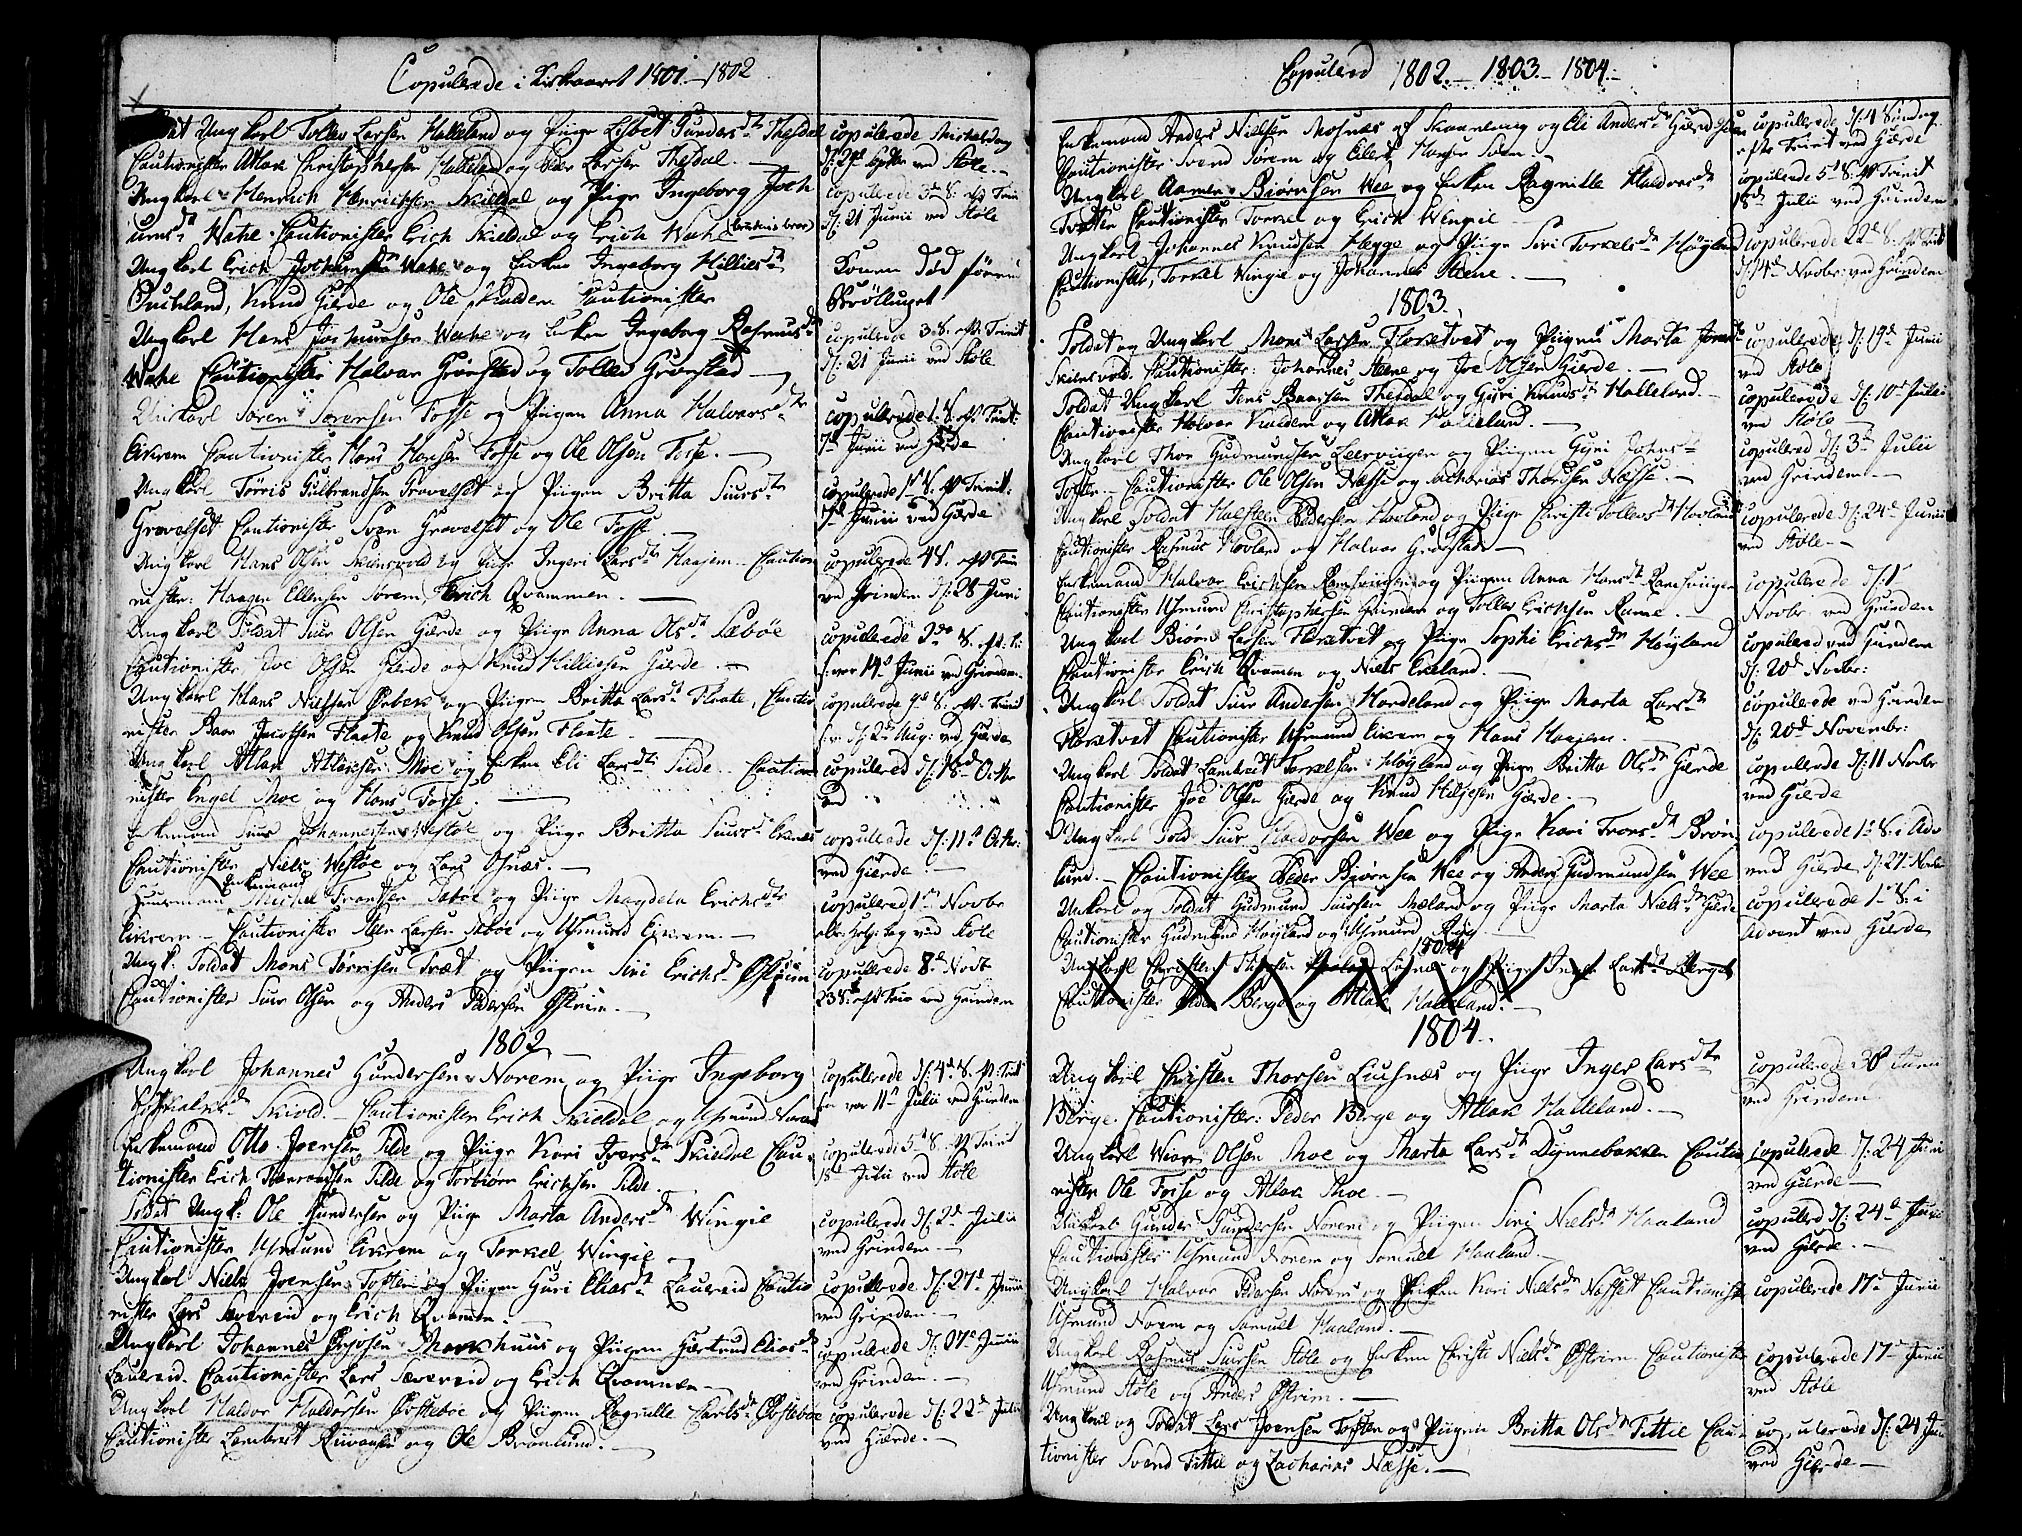 Copulerede i Kirkeaaret 1801.-1802
Ungkarl Tollev Larsen Halleland og Piige Lisbet Gunders Dtr Thesdal
Cautionister Atlak Christophersen Halleland og Larsen Thesdal.
Ungkarl Henrich Henrichsen Skieldal og Piige Ingeborg Joch
ums Dtr Wahe. Cautionister Erich Skieldal og Erich Wahe
Ungkarl Erich Jochumsen Wahe og Enken Ingeborg Hillies Dtr
Knud Gierde og Ole Cautionister
Ungkarl Hans Jochumsen Wahe og Enken Ingeborg Rasmus Dtr
Wahe Cautionister Halvar Grønstad og Tollev Grønstad
Ungkarl Søren Sørensen Fosse og Piigen Anna Halvars Dtr
Eikrem Cautionister Hans Hansen Fosse og Ole Olsen Fosse.
Ungkarl Tørris Gulbrandsen Gravelset og Piigen Britta Siurs Dtr
Gravelset Cautionister Sven Gravelset og Ole Fosse
Ungkarl Hans Olsen Skiensvold og Piige Ingeri Lars Dtr Haajem. Caution
nister: Haagen Ellensen Sørem, Erich Qvammen.
Ungkarl Soldat Siur Olsen Gierde og Piige Anna Ols Dtr Sæbøe
Cautionister Joe Olsen Gierde og Knud Hilliesen Gierde.
Ungkarl Hans Nielsen og Piigen Britta Lars Dtr Flaate, Cautio
nister Baar Jacobsen Flaate og Knud Olsen Flaate.
Ungkarl Atlak Atlaksen Moe og Enken Eli Lars Dtr Tilde. Caution
nister Engel Moe og Hans Fosse.
Enkemand Siur Johannessen Westøe og Piige Britta Siurs Dtr
Cautionister Niels Westøe og Lars Osnæs.
Enkemand
Michel Frantsen Sæbøe og Piige Magdela Erichs Dtr
Eikrem - Cautionister Sten Larsen Sæbøe og Asmund Eikrem.
Ungk: Soldat Mons Tørrisen Træt og Piigen Siri Erichs Dtr Østreim
Cautionister Siur Olsen og Anders Pedersen Østreim.
1802
Ungkarl Johannes Gundersen Norem og Piige Ingeborg
Skiold. - Cautionister Erich Skieldal og Asmund Norem
Enkemand Otto Joensen Tilde og Piige Kari Ivers Dtr Skieldal Cau
tionister Erich Tilde og Torbiørn Erichsen Tilde.
Soldat Ungk: Ole Gundersen og Piige Marta Anders Dtr Wingie
Cautionister Asmund Eikrem og Torkel Wingie
Ungkarl Niels Joensen Toften og Piigen Guri Elias Dtr Lauereid Cautio
nister Lars Særereid og Erich Qvammen.
Ungkarl Johannes Markhuus og Piigen Giertrud Elias Dtr
Lauereid. Cautionister Lars Særereid og Erich Qvammen
Ungkarl Haldor Haldorsen Østebøe og Piigen Ragnille Carls Dtr Østebøe
Cautionister Lambert og Ole Brønlund.
copulerede Michelsdag
ved Støle.
copulerede 3de S. eft. Trin
D: 21 Junii ved Støle
Konen Død førend
copulerede 3 S. eft. Trinit
D: 21 Junii ved Støle
copulerede 1 S. eft. Trinit:
7de Junii ved Gierde
copulerede 1 S. eft Trinit:
7de Junii ved Gierde
copulerede 4 S. eft Trin
ved Grindem D: 28 Juni
copulerede 2de S. eft. Tr:
14de Junii ved Grindem.
copulerede 9de S. eft. Trinit
2den Aug: ved Gierde
copulered D: 18de Octbr
ved
copulerede D: 11te Octbr:
ved Gierde
copulered 1ste Novbr
ved Støle
copulerede 8de Novb
23 S. eft Trin ved Grindem
copulerede D: 4de S. eft Trinit
11te Julii ved Grindem
copulerede 5te S. eft Trinit
18de Julii ved Støle
copulerede D: 2de Julii
ved Grindem
copulerede D: 27de Junii
ved Grindem
copulerede D: 27de Junii
ved Grindem.
copulerede D: 22de Julii
ved Gierde.
Copulered 1802.-1803.-1804.-
Enkemand Anders Nielsen Mosnæs af Skaanevig og Eli Anders Dtr
Cautionister Svend Sørem og Hansen
Ungkarl Aamen Biørnsen Wee og Enken Ragnille Haldors Dtr
Tvætten Cautionister Torkel og Erich Wingie
Ungkarl Johannes Knudsen Hegge og Piige Siri Torkels Dtr Høyland
Cautionister, Torkel Wingie og Johannes Steene.
1803.
Soldat og Ungkarl Mons Larsen Floretvet og Piigen Marta Jons Dtr
Skiensvold. Cautionister: Johannes Steene og Joe Olsen Gierde.
Soldat Ungkarl Jens Baarsen Thesdal og Guri Knuds Dtr Halleland.
Cautionister Halvor og Atlak Halleland.
Ungkarl Thor Gudmundsen Leervigen og Piigen Gyri Johns Dtr
Toften - Cautionister Ole Olsen Næsse og Zachrias Thordsen Næsse.
Ungkarl Soldat Halsten Pedersen Hovland og Piige Christi Tollevs Dtr Hovland
Cautionister Rasmus Hovland og Halvar Grønstad
Enkemand Halvor Erichsen Ramsvigen og Piigen Anna Hans Dtr Ramsvigen
Cautionister Asmund Christophersen Grindem og Tollev Erichsen
Ungkarl Biørn Larsen Floretvet og Piige Sophi Erichs Dtr Høyland
Cautionister Erich Qvamen og Niels Ekeland.
Ungkarl Soldat Siur Andersen Hordeland og Piige Marta Lars Dtr
Floretvet Cautionister Asmund Eikrem og Hans Haajem.
Ungkarl Soldat Lambrect Torkelsen Høyland og Piige Britta Ols Dtr Gierde
Cautionister Joe Olsen Gierde og Knud Hiljesen Gierde.
Ungkarl Sold Siur Haldorsen Wee og Piige Kari Trons Dtr Brøn
lund. - Cautionister Peder Biørnsen Wee og Anders Gudmundsen Wee
Ungkarl og Soldat Gudmund Siursen Mæland og Piige Marta Niels Dtr Gierde
Cautionister Gudmund Høyland og Asmund
1804
Ungkarl Christen Thorsen Lusnæs og Piige Inger Lars Dtr Berge
Cautionister Peder Berge og Atlak Halleland.
1804.
Ungkarl Christen Thorsen Liusnæs og Piige Inger Lars Dtr
Berge. Cautionister: Peder Berge og Atlak Halleland.
Ungkarl Wier Olsen Moe og Marta Lars Dtr Dynnebakken Cautio
nister Ole Fosse og Atlak Moe.
Ungkarl Gunder Gundersen Norem og Piigen Siri Niels Dtr Haaland
Cautionister Asmund Norem og Samuel Haaland.
Ungkarl Halvor Pedersen Norem og Piigen Kari Niels Dtr Cautionister
Asmund Norem og Samuel Haaland.
Ungkarl Rasmus Siursen Støle og Enken Christi Niels Dtr Østrim. Cautionister
Asmund Støle og Anders Østrim.
Ungkarl og Soldat Lars Joensen Toften og Piigen Britta Ols Dtr Tittie Cau-
tionister Svend Tittie og Zacharias Næsse.
copulerede D: 4 Søndag
efter Trinit ved Gierde
copulerede 5te S. eft Trinit
18de Julii ved Grindem
copulerede 22de S. eft Trinit
D: 14de Novbr: ved Grindem
copulerede D: 19de Junii
ved Støle
copulerede D: 10de Julii
ved Støle
copulered D: 3de Julii
ved Grindem.
copulerede D: 24de Junii
ved Støle
copulerede D: 1ste
Novbr ved Grindem
copulered ved Grindem
D: 20de Novbr:
copulerede ved Grindem
D: 20de Novembr:
copulerede D: 11 Novbr
ved Gierde
copulerede 1ste S. i Adv
ved Gierde D: 27 Novbr
copulerede 1ste S. i
Advent ved Gierde
copulerede 30te Junii
ved Grindem
copulerede D: 24 Junii
ved Gierde
copulered D: 24de Junii
ved Gierde.
copulerede 17de Junii
copulerede 17de Junii
ved Støle
copulerede D: 24 Junii
ved Gierde